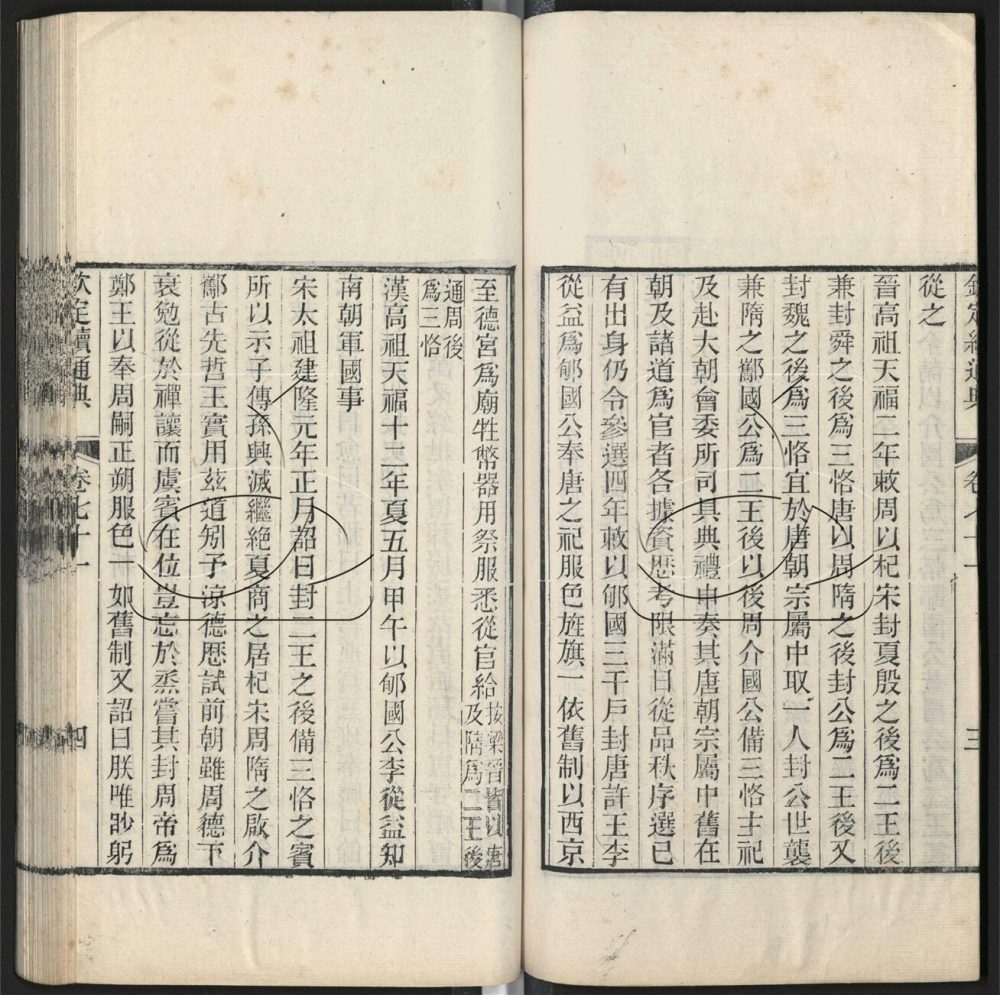 欽定續通典 卷七十一 三
從之
晉高祖天福二年敕周以杞宋封夏殷之後爲二王後
兼封舜之後爲三恪唐以周隋之後封公爲二王後又
封魏之後爲三恪宜於唐朝宗屬中取一人封公世襲
兼隋之酅國公爲二王後以後周介國公備三恪主祀
及赴大朝會委所司具典禮申奏其唐朝宗屬中舊在
朝及諸道爲官者各據資歷考限滿日從品秩序選已
有出身仍令參選四年敕以郇國三千戶封唐許王李
從益爲郇國公奉唐之祀服色旌旗一依舊制以西京
至德宮爲廟牲幣器用祭服悉從官給按梁晉皆以唐
及隋爲二王後
通周後
爲三恪
漢高祖天福十二年夏五月甲午以郇國公李從益知
南朝軍國事
宋太祖建隆元年正月詔曰封二王之後備三恪之賓
所以示子傳孫興滅繼絕夏商之居杞宋周隋之啟介
酅古先哲王實用茲道矧予涼德歷試前朝雖周德下
衰勉從於禪讓而虞賓在位豈忘於烝嘗其封周帝爲
鄭王以奉周嗣正朔服色一如舊制又詔曰朕唯眇躬
欽定續通典 卷七十一 四